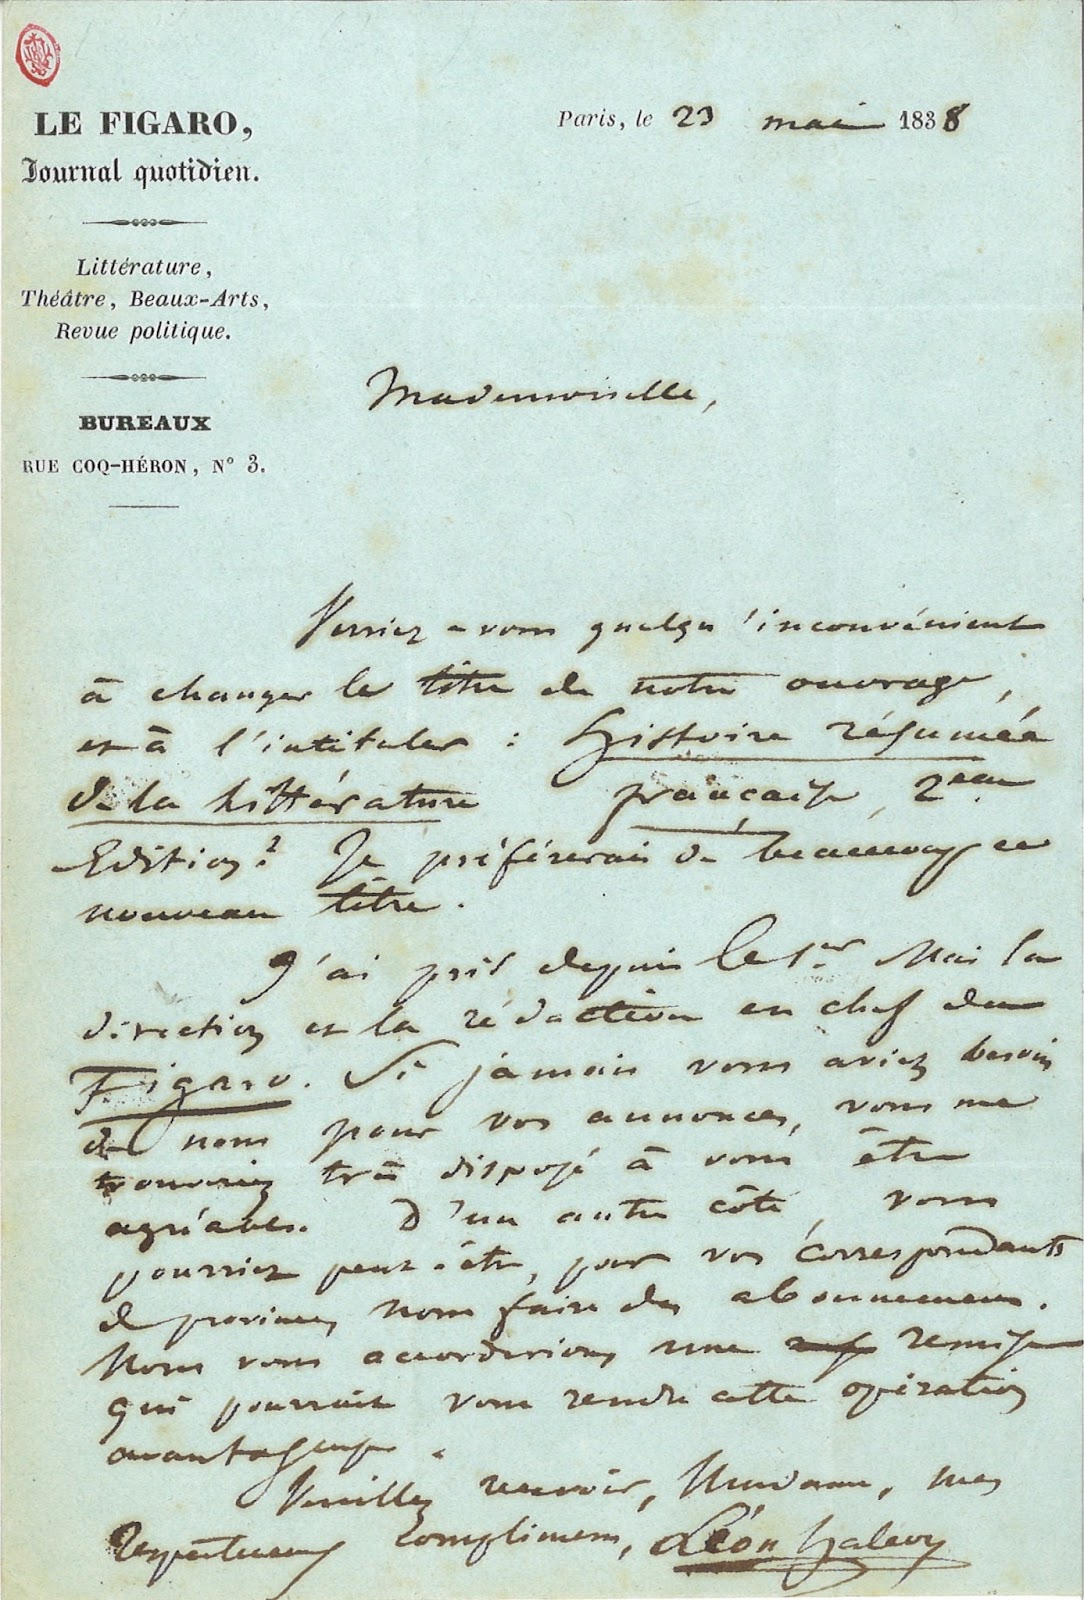 LE FIGARO,
Journal quotidien.
Littérature,
Théâtre, Beaux-Arts,
Revue politique.
BUREAUX
RUE COQ-HÉRON, N° 3.
Paris, le 23 mai 1838
Mademoiselle,
Verriez-vous quelqu'inconvénient
à changer le titre de notre ouvrage,
et à l'intituler : Histoire résumée
de la littérature française, 2eme
Edition? Je préférerais de beaucoup ce
nouveau titre.
J'ai pris depuis le 1er Mai la
direction et la rédaction en chef du
Figaro. Si jamais vous aviez besoin
de nous pour vos annonces, vous me
trouveriez très disposé à vous être
agréable. D'un autre côté, vous
pourriez peut-être, pour vos correspondants
de province, nous faire des abonnemens.
Nous vous accorderions une remise
qui pourrait vous rendre cette opération
avantageuse.
Veuillez recevoir, Madame, mes
respectueux complimens,
Léon Halévy